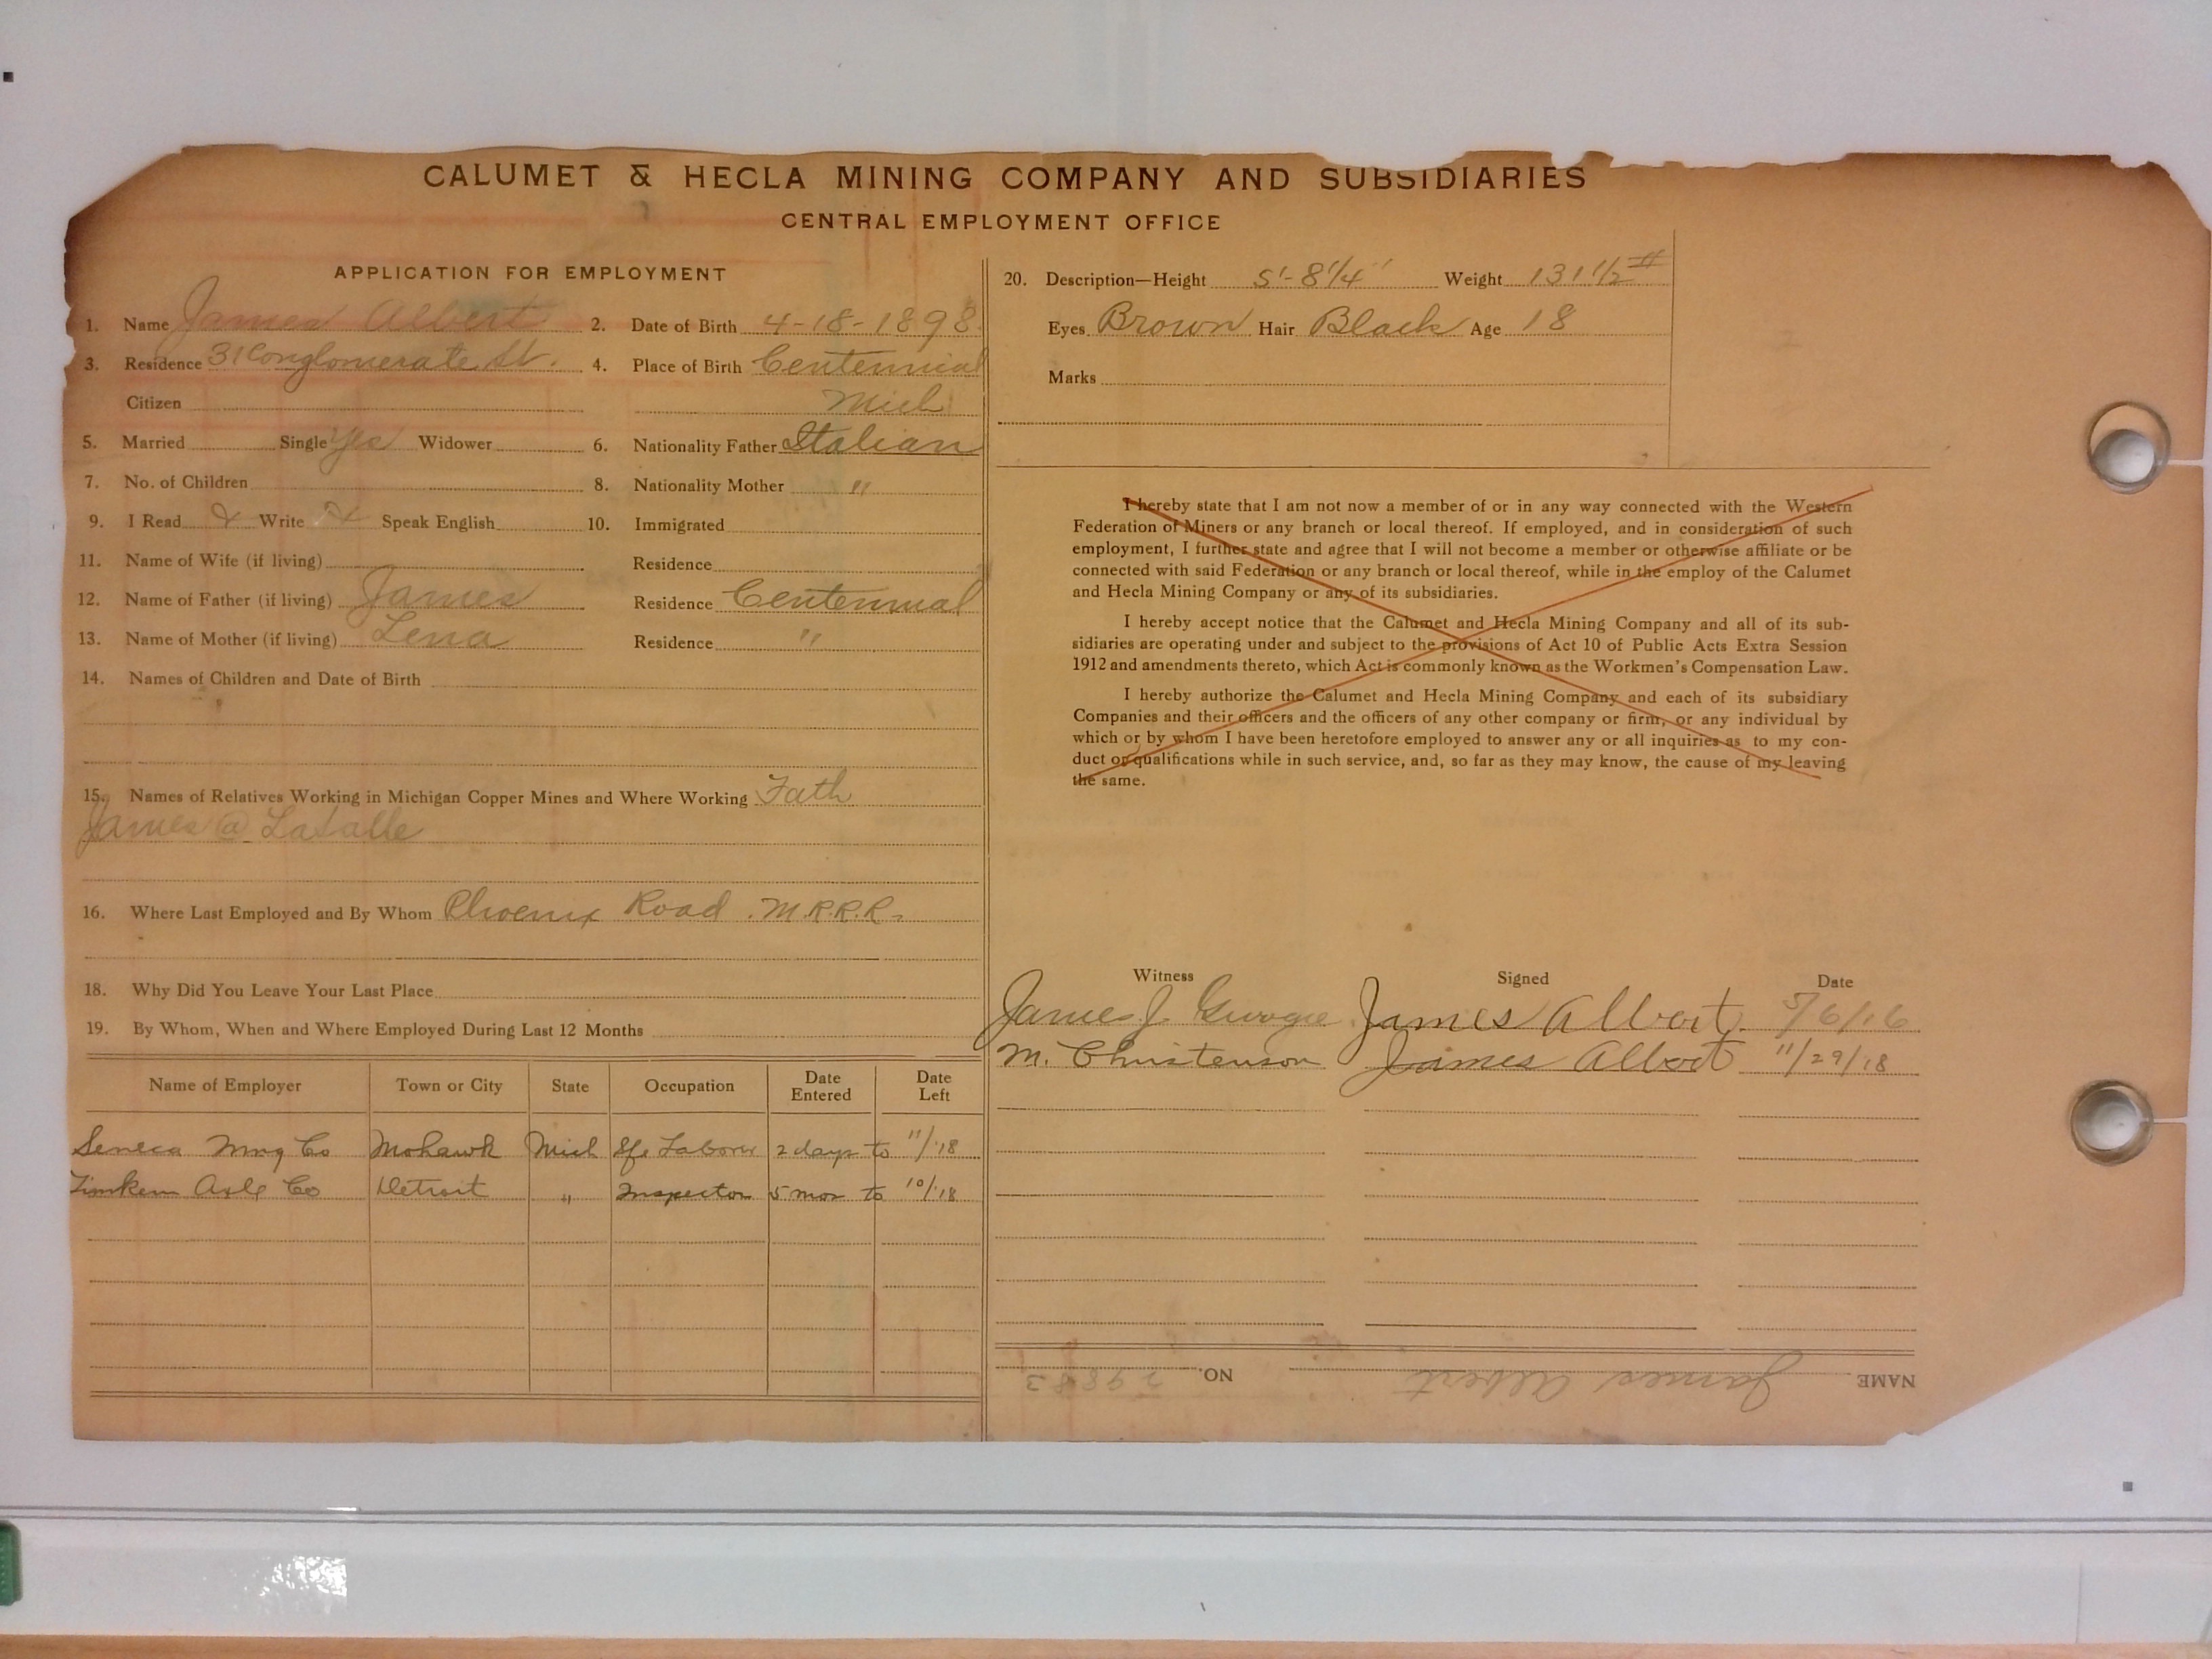 CALUMET & HECLA MINING COMPANY AND SUBSIDIARIES
CENTRAL EMPLOYMENT OFFICE
APPLICATION FOR EMPLOYMENT
1. Name James Albert 2. Date of Birth 4-18-1898
3. Residence 31 Conglomerate St. 4. Place of Birth Centennial
Citizen Mich
5. Married Single Yes Widower 6. Nationality Father Italian
7. No. of Children 8. Nationality Mother "
9. I Read & Write Speak English 10. Immigrated
11. Name of Wife (if living) Residence
12. Name of Father (if living) James Residence Centennial
13. Name of Mother (if living) Lena Residence "
14. Names of Children and Date of Birth
15. Names of Relatives Working in Michigan Copper Mines and Where Working Fath
James @ LaSalle
16. Where Last Employed and By Whom Phoenix Road M.R.R.R.
18. Why Did You Leave Your Last Place
19. By Whom, When and Where Employed During Last 12 Months
Name of Employer Town or City State Occupation Date Entered Date Left
Seneca Mng Co Mohawk Mich Sfc Laborer 2 days to 11/18
Timken Axle Co Detroit " Inspector 5 mos to 10/18
20. Description—Height 5'-8 1/4" Weight 131 1/2 #
Eyes Brown Hair Black Age 18
Marks
I hereby state that I am not now a member of or in any way connected with the Western
Federation of Miners or any branch or local thereof. If employed, and in consideration of such
employment, I further state and agree that I will not become a member or otherwise affiliate or be
connected with said Federation or any branch or local thereof, while in the employ of the Calumet
and Hecla Mining Company or any of its subsidiaries.
I hereby accept notice that the Calumet and Hecla Mining Company and all of its sub-
sidiaries are operating under and subject to the provisions of Act 10 of Public Acts Extra Session
1912 and amendments thereto, which Act is commonly known as the Workmen's Compensation Law.
I hereby authorize the Calumet and Hecla Mining Company and each of its subsidiary
Companies and their officers and the officers of any other company or firm, or any individual by
which or by whom I have been heretofore employed to answer any or all inquiries as to my con-
duct or qualifications while in such service, and, so far as they may know, the cause of my leaving
the same.
Witness Signed Date
James J. James Albert 5/6/16
M. Christenson James Albert 11/29/18
NAME James Albert NO. 29883